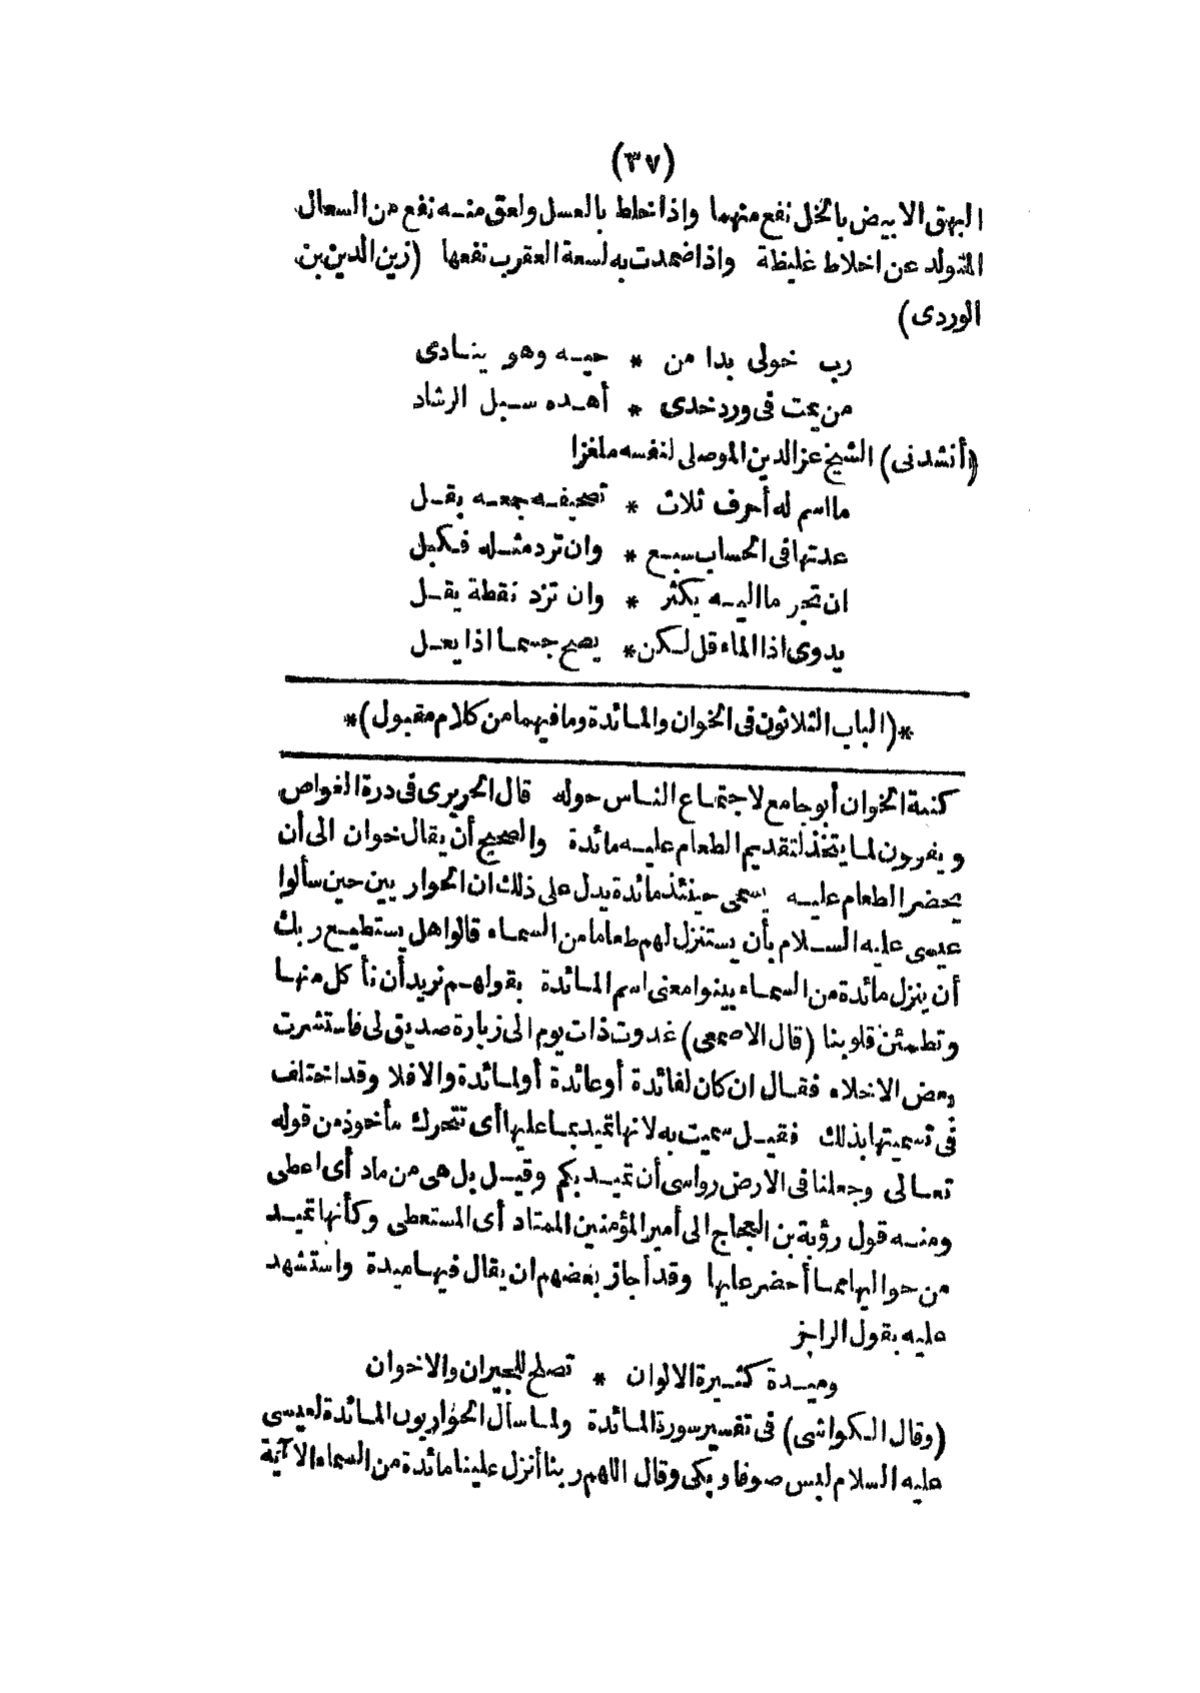 (٣٧)
البهق الابيض بالخل نفع منهما واذا خلط بالعسل ولعق منه نفع من السعال
المتولد عن اخلاط غليظة واذا ضمدت به لسعة العقرب نفعها (زين الدين بن
الوردى)
رب خولى بدا من * حيه وهو ينادى
من يمت فى ورد خدى * أهده سبل الرشاد
(أنشدنى) الشيخ عز الدين الموصلى لنفسه ملغزا
ما اسم له أحرف ثلاث * تصحيفه جمعه بقل
عدتها فى الحساب سبع * وان ترد مثله فكل
ان تجر ما اليه يكثر * وان تزد نقطة يقل
يدوى اذا الماء قل لكن * يصح جسما اذا يعل
*(الباب الثلاثون فى الخوان والمائدة وما فيهما من كلام مقبول)*
كنية الخوان أبو جامع لاجتماع الناس حوله قال الحريرى فى درة الغواص
ويقولون لما يتخذ لتقديم الطعام عليه مائدة والصحيح أن يقال خوان الى أن
يحضر الطعام عليه يسمى حينئذ مائدة يدل على ذلك ان الحوار بين حين سألوا
عيسى عليه السلام بأن يستنزل لهم طعاما من السماء قالوا هل يستطيع ربك
أن ينزل مائدة من السماء بينوا معنى اسم المائدة بقولهم نريد أن نأكل منها
وتطمئن قلوبنا (قال الاصمعى) غدوت ذات يوم الى زيارة صديق لى فاستشرت
بعض الاخلاء فقال ان كان لفائدة أو عائدة أو لمائدة والا فلا وقد اختلف
فى تسميتها بذلك فقيل سميت به لانها تميد بما عليها أى تتحرك مأخوذ من قوله
تعالى وجعلنا فى الارض رواسى أن تميد بكم وقيل بل هى من ماد أى اعطى
ومنه قول رؤبة بن العجاج الى أمير المؤمنين الممتاد أى المستعطى وكأنها تميد
من حواليها مما أحضر عليها وقد أجاز بعضهم ان يقال فيها ميدة واستشهد
عليه بقول الراجز
وميدة كثيرة الالوان * تصلح للجيران والاخوان
(وقال الكواشى) فى تفسير سورة المائدة ولما سأل الحواريون المائدة لعيسى
عليه السلام لبس صوفا وبكى وقال اللهم ربنا أنزل علينا مائدة من السماء الآية